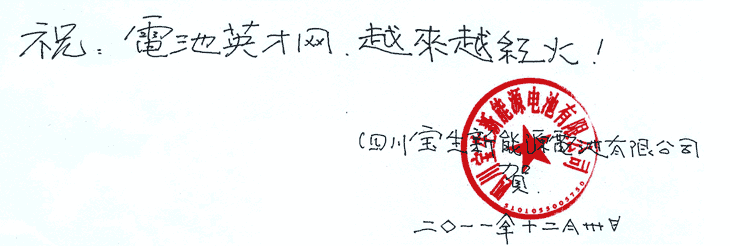 祝：電池英才网.越來越紅火！
(四川宝生新能源電池有限公司
賀.
二〇一一年十二月卅日
四川宝生新能源电池有限公司
5101055005730